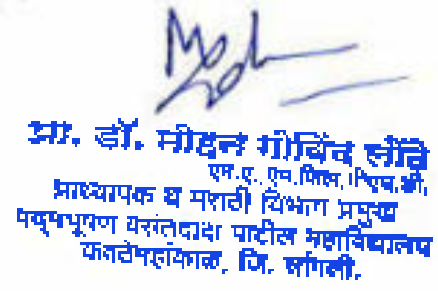 प्रा. डॉ. मोहन गोविंद लोंढे
एम.ए., एम.फिल., पीएच.डी.
प्राध्यापक व मराठी विभाग प्रमुख
पद्मभूषण वसंतदादा पाटील महाविद्यालय
कवठेमहांकाळ, जि. सांगली.